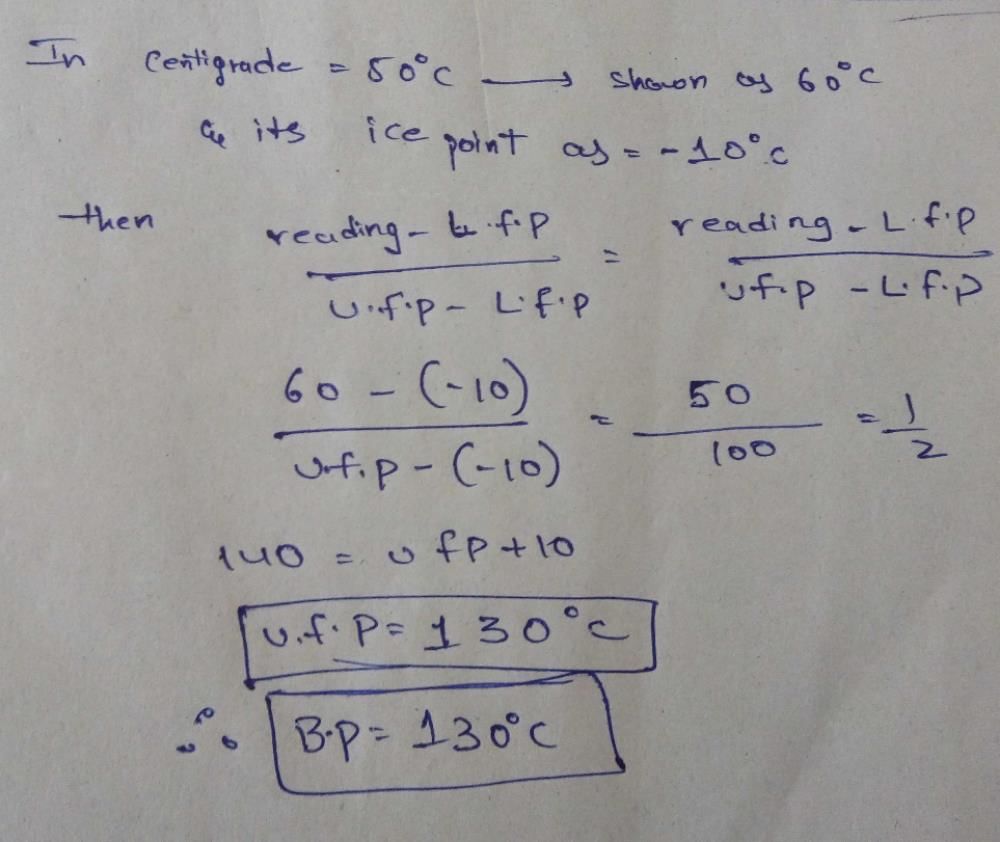 In Centigrade = 50°C → shown as 60°C
& its ice point as = -10°C
then reading - L.f.p / U.f.p - L.f.p = reading - L.f.p / U.f.p - L.f.p
60 - (-10) / U.f.p - (-10) = 50 / 100 = 1 / 2
140 = U fp + 10
U.f.P = 130°C
∴ B.P = 130°C